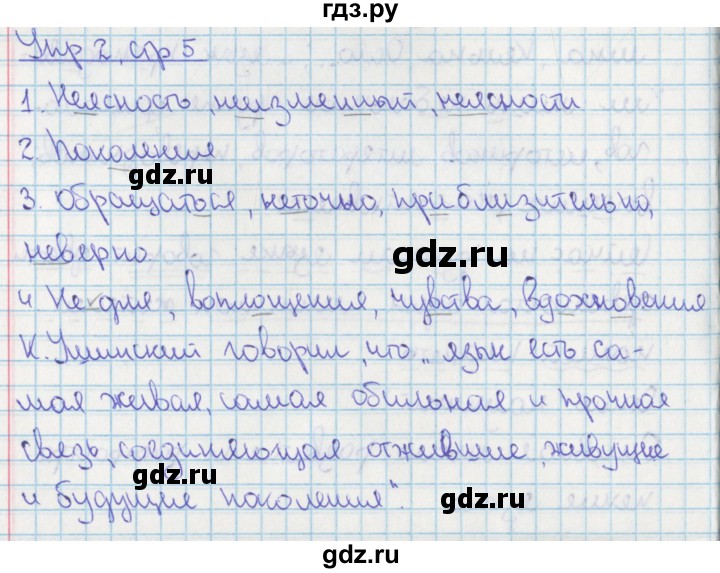 гдз.ру
Упр 2, стр 5
1. Неясность, неизменный, неясности
2. Поколения
gdz.ru
3. Обращаться, неточно, приблизительно,
gdz.ru
неверно
4. Не для, воплощения, чувства, вдохновения
К. Ушинский говорил, что „язык есть са-
мая живая, самая обильная и прочная
gdz.ru
связь, соединяющая отжившие, живущие
gdz.ru
и будущие поколения".
gdz.ru
gdz.ru